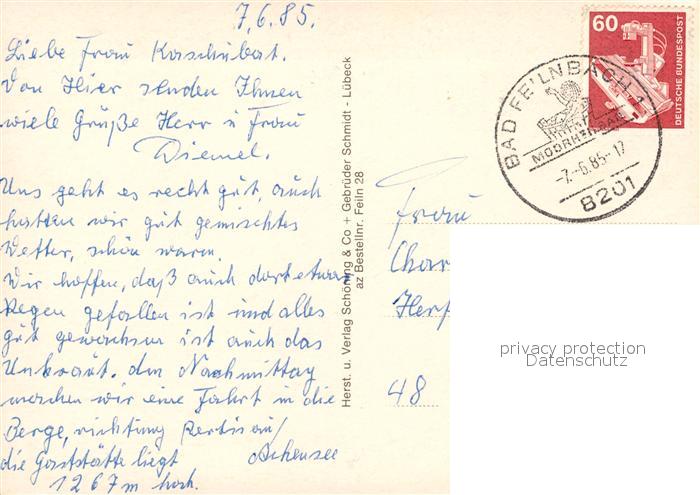 7.6.85.
Liebe Frau Kaschubat.
Von Hier senden Ihnen
viele Grüße Herr u Frau
Diemel.
Uns geht es recht gut, auch
hatten wir gut gemischtes
Wetter, schön warm.
Wir hoffen, daß auch dort etwas
Regen gefallen ist und alles
gut gewachsen ist auch das
Unkraut. den Nachmittag
machen wir eine Fahrt in die
Berge, richtung
die Gaststätte liegt Achensee
1267 m hoch.
Herst. u. Verlag Schöning & Co + Gebrüder Schmidt - Lübeck
az Bestellnr. Feiln 28
60
DEUTSCHE BUNDESPOST
BAD FEILNBACH 1
MOORHEILBAD
-7.-6.85-17
8201
Frau
Char
Herf
48
privacy protection
Datenschutz